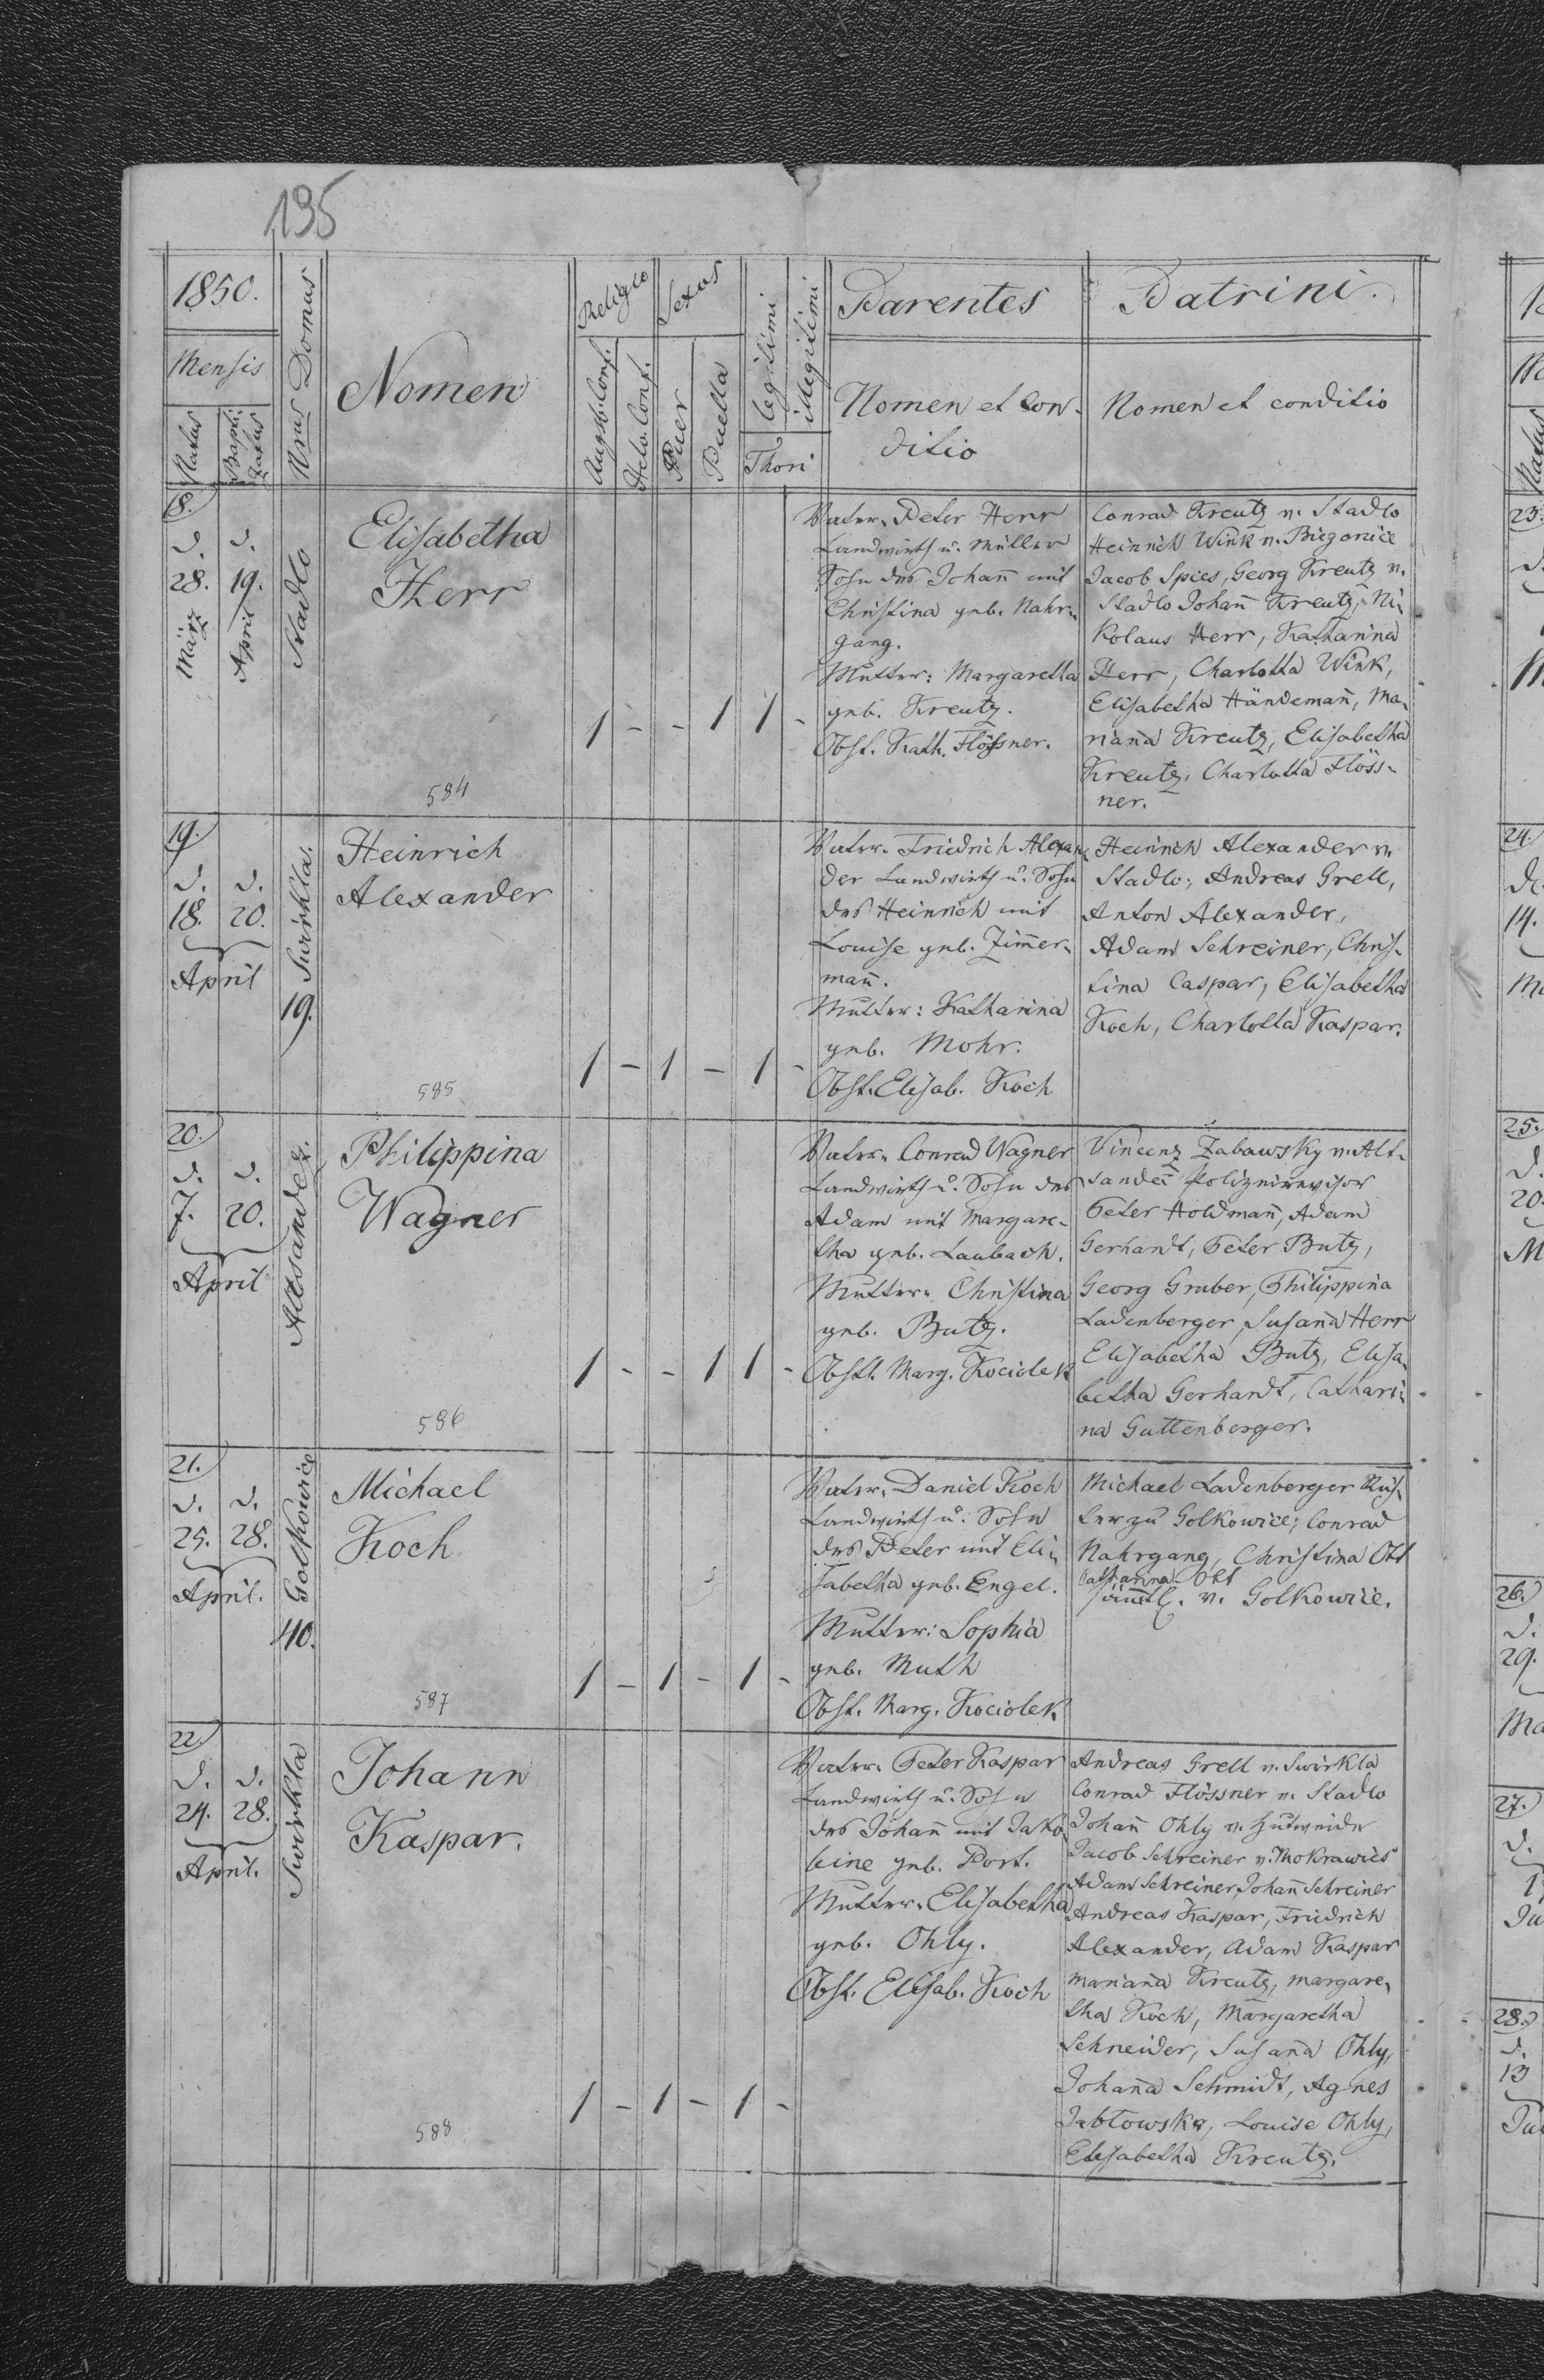 195
1850.
Mensis
Natus
Bapti-
zatus
Nrus Domus
Nomen
Religio
Augsb. Conf.
Helv. Conf.
Sexus
Puer
Puella
legitimi
illegitimi
Thori
Parentes
Nomen et Con-
ditio
Patrini.
Nomen et conditio
18.
d. d.
28. 19.
März April
Stadlo
Elisabetha
Herr
584
1 - - 1 1 -
Vater: Peter Herr
Landwirth u. Müller
Sohn des Johañ mit
Christina geb. Nahr-
gang.
Mutter: Margaretha
geb. Kreutz.
Obst. Kath. Flössner.
Conrad Kreutz v. Stadlo
Heinrich Wink v. Biegonice
Jacob Spies, Georg Kreutz v.
Stadlo Johañ Kreutz, Ni-
kolaus Herr, Katharina
Herr, Charlotta Wink,
Elisabetha Händemañ, Ma-
riaña Kreutz, Elisabetha
Kreutz, Charlotta Flöss-
ner.
19.
d. d.
18. 20.
April
Swirkla.
19.
Heinrich
Alexander
585
1 - 1 - 1 -
Vater: Friedrich Alexan-
der Landwirth u. Sohn
des Heinrich mit
Louise geb. Zim̃er-
mañ.
Mutter: Katharina
geb. Mohr.
Obst. Elisab. Koch
Heinrich Alexander v.
Stadlo; Andreas Grell,
Anton Alexander,
Adam Schreiner, Chris-
tina Caspar, Elisabetha
Koch, Charlotta Kaspar.
20.
d. d.
7. 20.
April
Altsandez.
Philippina
Wagner
586
1 - - 1 1 -
Vater: Conrad Wagner
Landwirth u. Sohn des
Adam mit Margare-
tha geb. Laubach.
Mutter: Christina
geb. Butz.
Obst. Marg. Kociolek
Vincenz Zabawsky v. Alt-
sandec Polizeirevisor
Peter Holdmañ, Adam
Gerhardt, Peter Butz,
Georg Gruber, Philippina
Ladenberger, Susaña Herr
Elisabetha Butz, Elisa-
betha Gerhardt, Cathari-
na Guttenberger.
21.
d. d.
25. 28.
April.
Golkowice
40.
Michael
Koch
587
1 - 1 - 1 -
Vater: Daniel Koch
Landwirth u. Sohn
des Peter mit Eli-
sabetha geb. Engel.
Mutter: Sophia
geb. Muth
Obst. Marg. Kociolek
Michael Ladenberger Küs-
ter zu Golkowice; Conrad
Nahrgang, Christina Ott
Catharina Ott
säm̃tl. v. Golkowice.
22.
d. d.
24. 28.
April.
Swirkla
Johann
Kaspar.
588
1 - 1 - 1 -
Vater: Peter Kaspar
Landwirth u. Sohn
des Johañ mit Jako-
bine geb. Port.
Mutter: Elisabetha
geb. Ohly.
Obst. Elisab. Koch
Andreas Grell v. Swirkla
Conrad Flössner v. Stadlo
Johañ Ohly v. Hutweide
Jacob Schreiner v. Mokrawies
Adam Schreiner, Johañ Schreiner
Andreas Kaspar, Friedrich
Alexander, Adam Kaspar
Mariaña Kreutz, Margare-
tha Koch, Margaretha
Schneider, Susaña Ohly,
Johaña Schmidt, Agnes
Jabłowska, Louise Ohly,
Elisabetha Kreutz.
23.
24.
14.
25.
20.
26.
29.
27.
28.
13